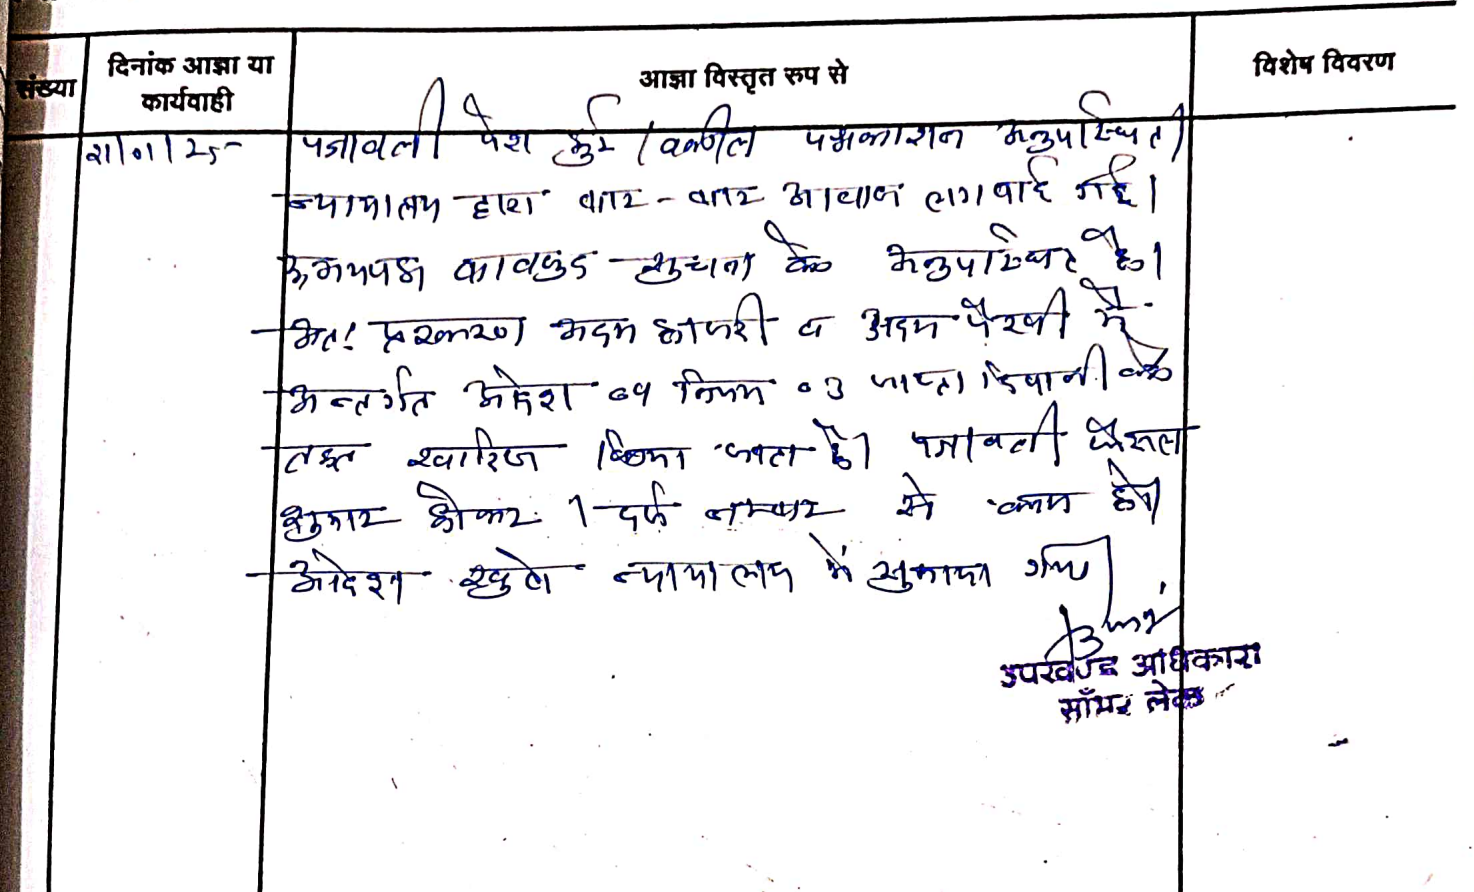 संख्या
दिनांक आज्ञा या
कार्यवाही
आज्ञा विस्तृत रुप से
विशेष विवरण
पत्रावली पेश हुई। वकील पक्षकारान अनुपस्थित।
न्यायालय द्वारा बार-बार आवाज लगवाई गई।
उभयपक्ष बावजुद सुचना के अनुपस्थित है।
अतः प्रकरण अदम हाजरी व अदम पैरवी में
अन्तर्गत आदेश 09 नियम 03 जाप्ता दिवानी के
तहत खारिज किया जाता है। पत्रावली फैसल
शुमार होकर दर्ज नम्बर से कम हो।
आदेश खुले न्यायालय में सुनाया गया।
उपखण्ड अधिकारी
साँभर लेक